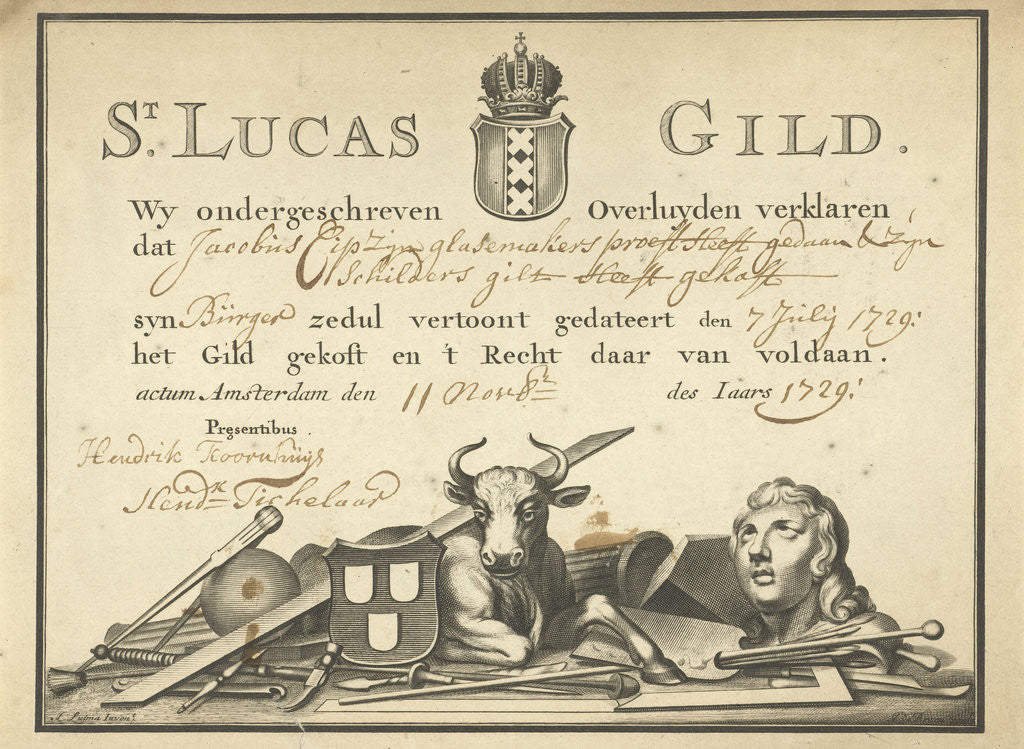 ST. LUCAS GILD.
Wy ondergeschreven Overluyden verklaren
dat Jacobus Eip zyn glasemakers proeft Heeft gedaan & zyn
Schilders gilt Heeft gekoft
syn Bürger zedul vertoont gedateert den 7 July 1729:
het Gild gekoft en 't Recht daar van voldaan.
actum Amsterdam den 11 Nov 8r des Iaars 1729:
Pręsentibus.
Hendrik
Hendk Tichelaar